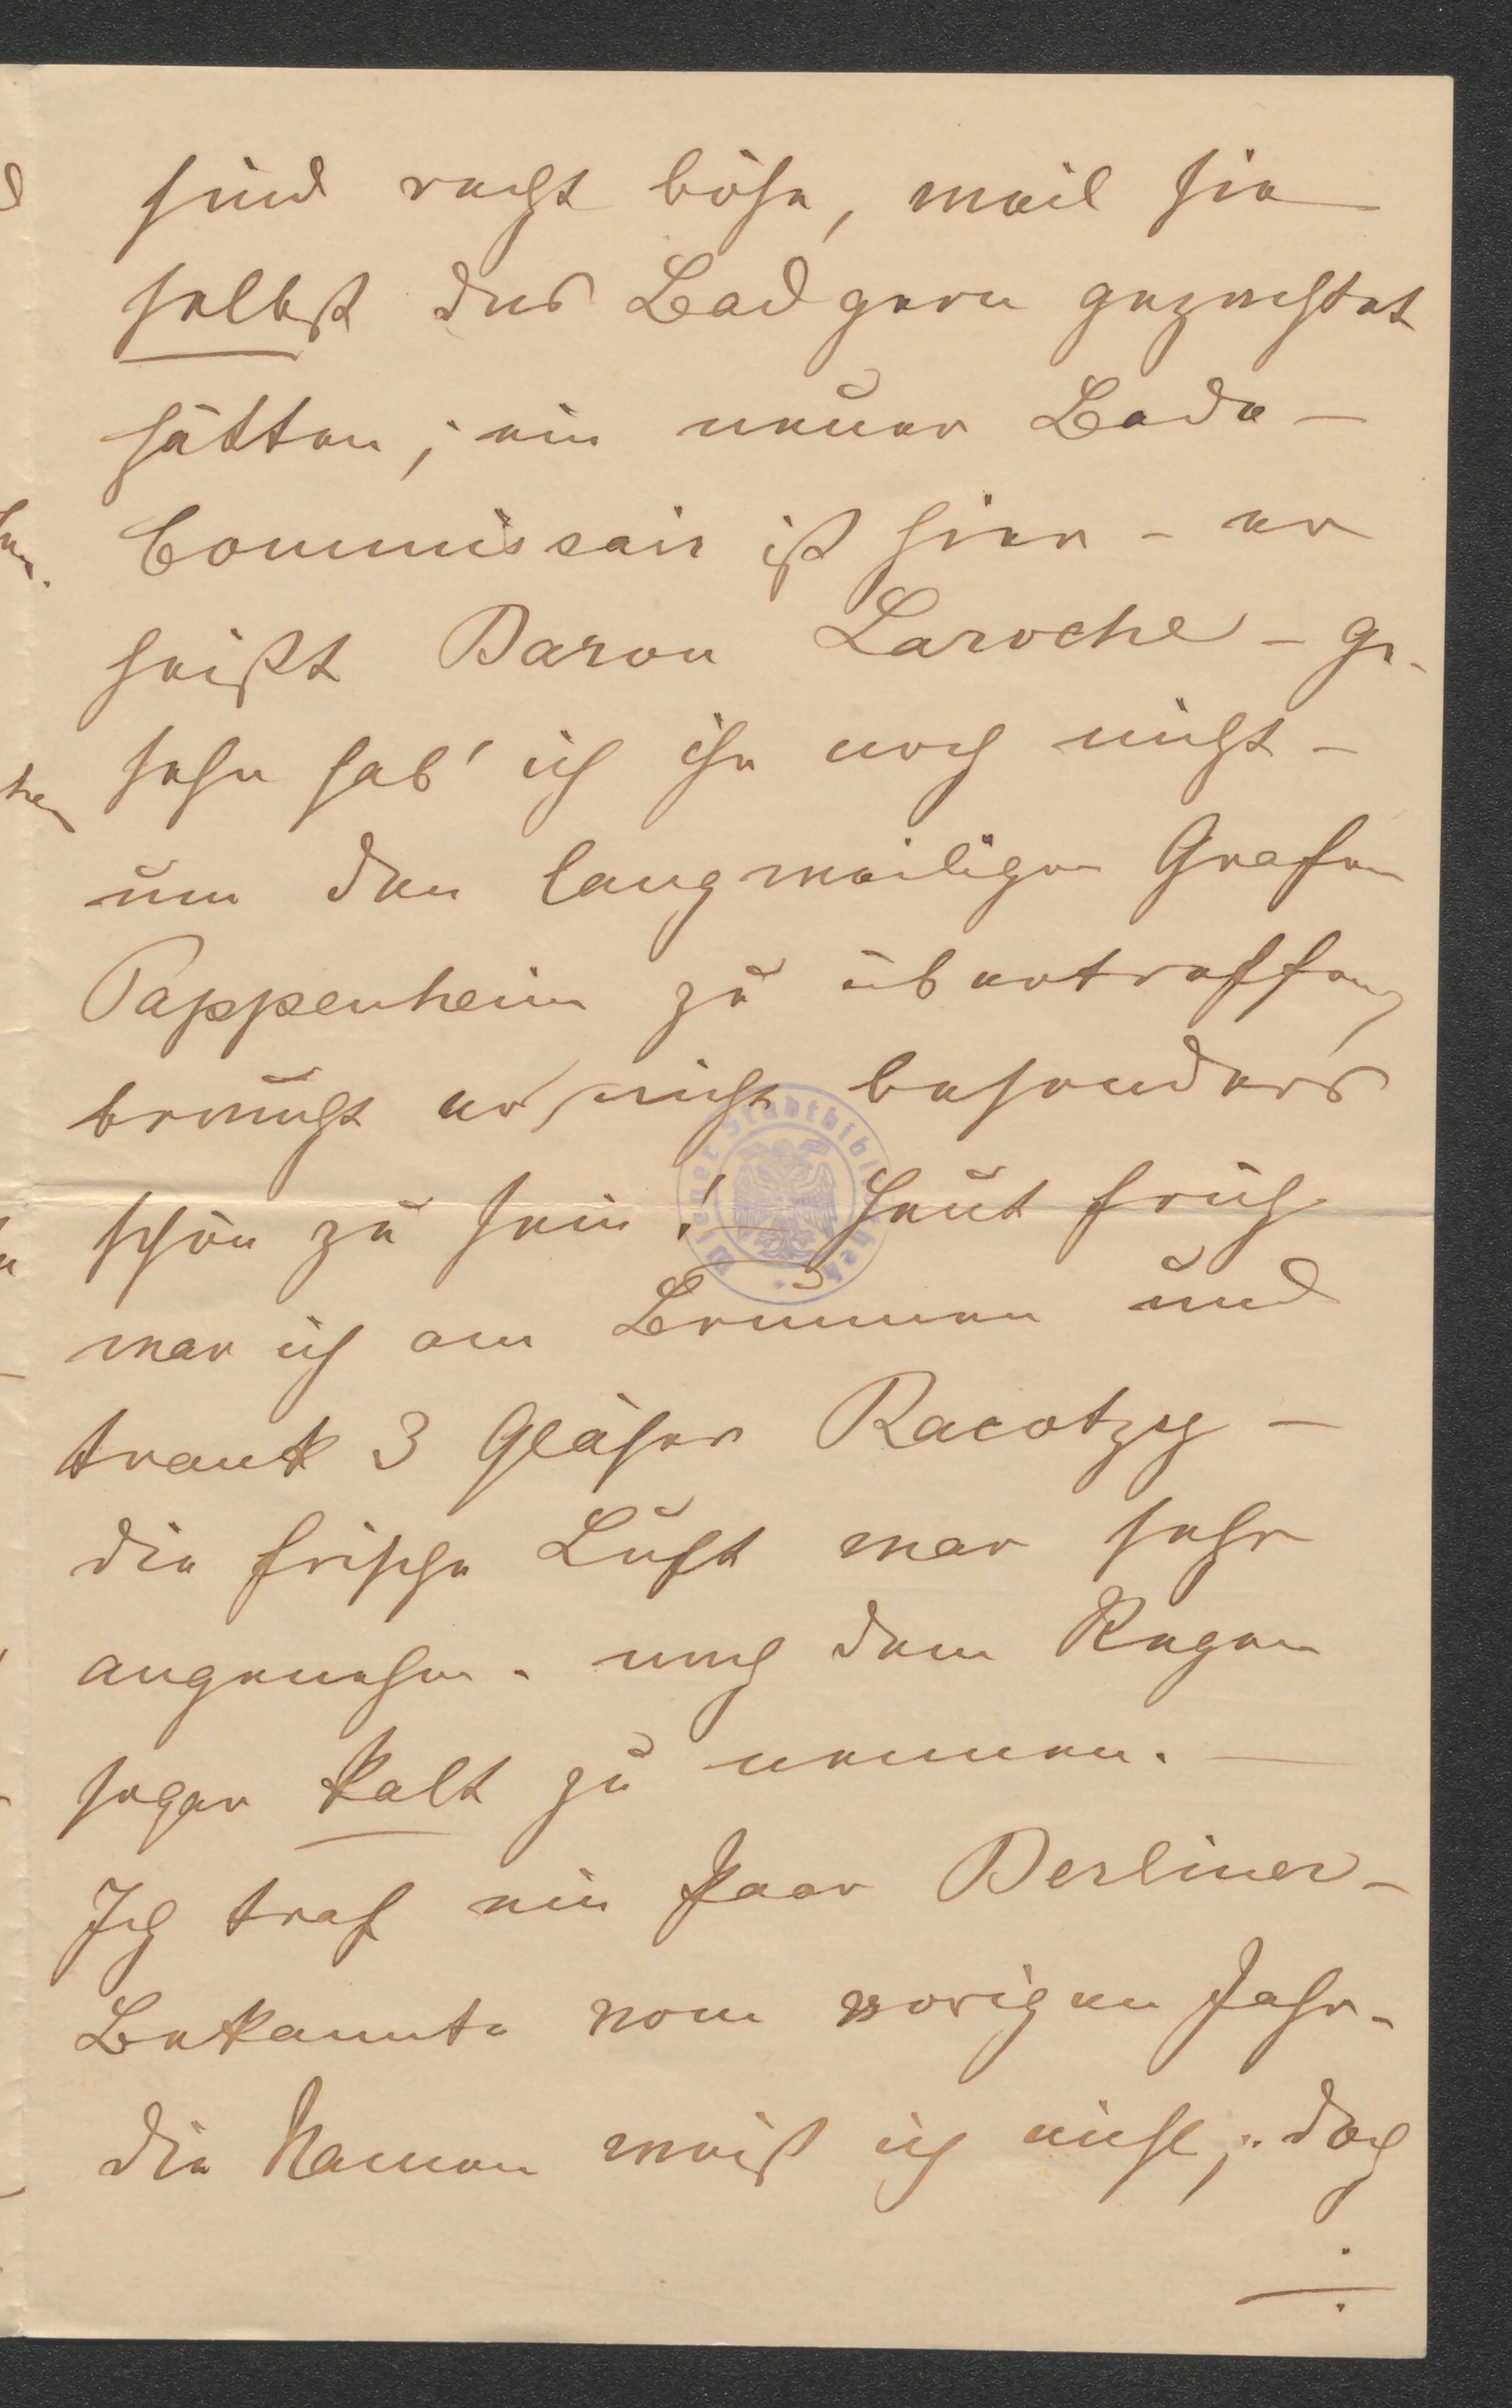 sind recht böse, weil sie
selbst das Bad gern gepachtet
hätten; ein neuer Bade-
Commissair ist hier - er
heißt Baron Laroche - ge-
sehn hab' ich ihn noch nicht -
um den langweiligen Grafen
Pappenheim zu übertreffen,
braucht er nicht besonders
schön zu sein! - Heut früh
war ich am Brunnen und
trank 3 Gläser Racotzy -
die frische Luft war sehr
angenehm - nach dem Regen
sogar kalt zu nennen. -
Ich traf ein Paar Berliner -
Bekannte vom vorigen Jahr -
die Namen weiß ich nicht; doch